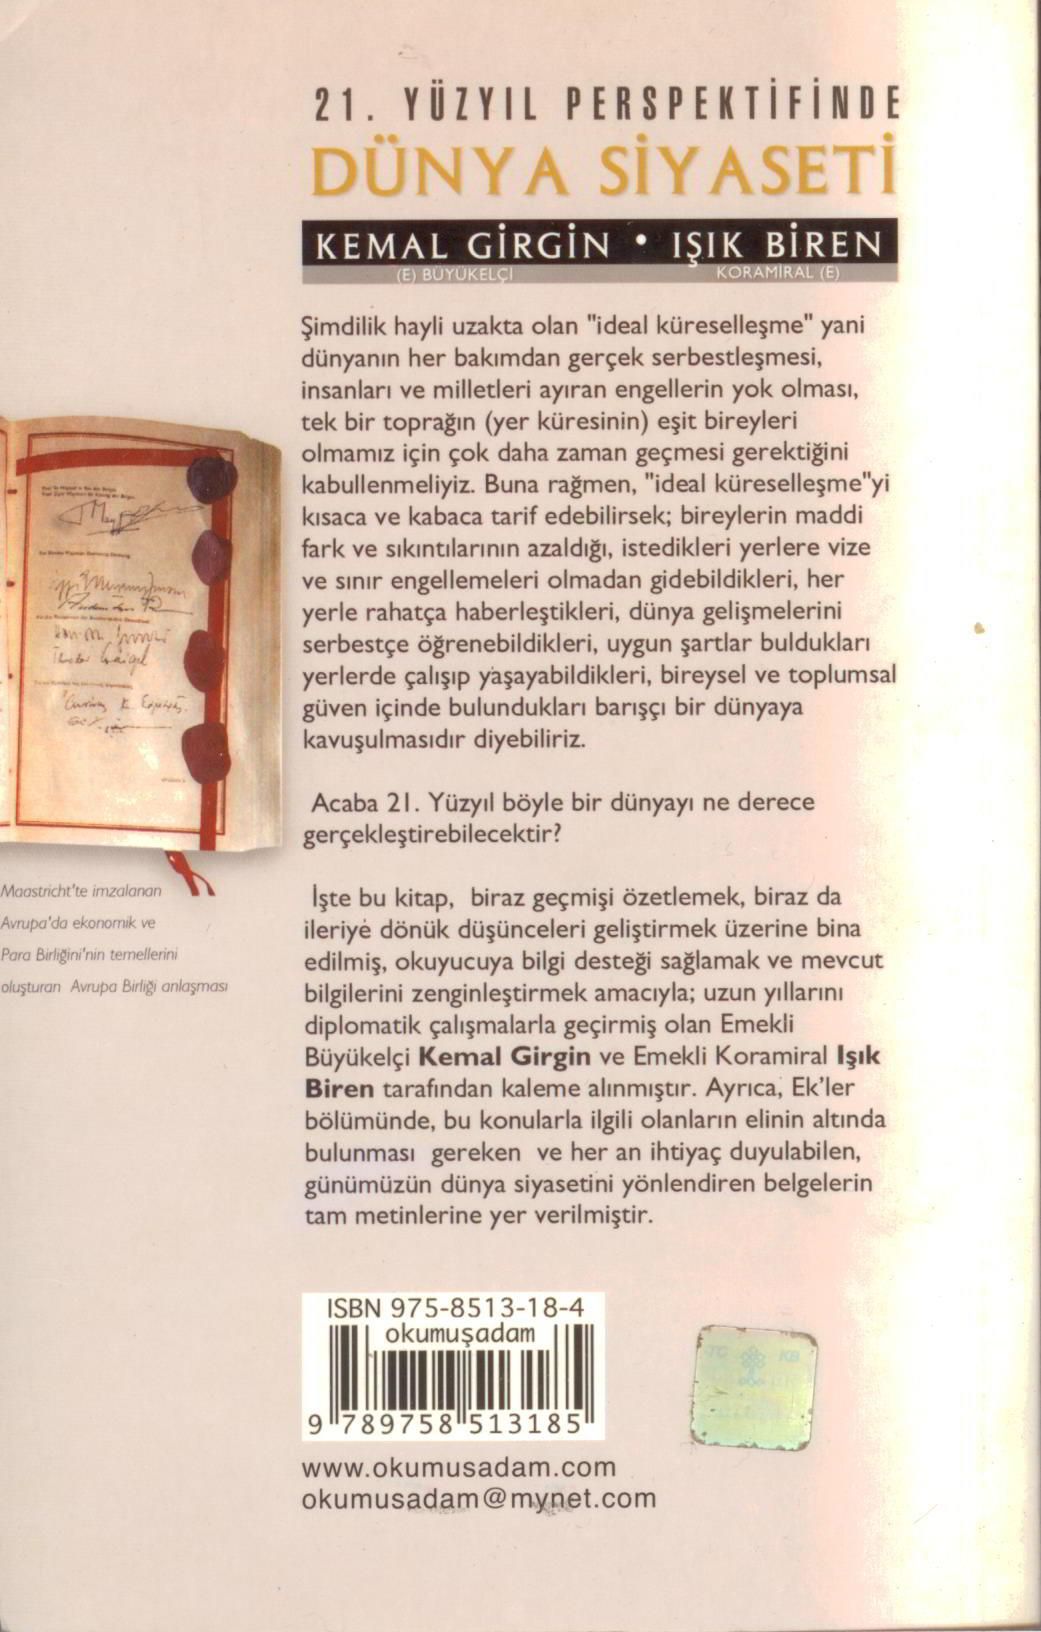 21. YÜZYIL PERSPEKTİFİNDE
DÜNYA SİYASETİ
KEMAL GİRGİN • IŞIK BİREN
(E) BÜYÜKELÇİ KORAMİRAL (E)
Şimdilik hayli uzakta olan "ideal küreselleşme" yani
dünyanın her bakımdan gerçek serbestleşmesi,
insanları ve milletleri ayıran engellerin yok olması,
tek bir toprağın (yer küresinin) eşit bireyleri
olmamız için çok daha zaman geçmesi gerektiğini
kabullenmeliyiz. Buna rağmen, "ideal küreselleşme"yi
kısaca ve kabaca tarif edebilirsek; bireylerin maddi
fark ve sıkıntılarının azaldığı, istedikleri yerlere vize
ve sınır engellemeleri olmadan gidebildikleri, her
yerle rahatça haberleştikleri, dünya gelişmelerini
serbestçe öğrenebildikleri, uygun şartlar buldukları
yerlerde çalışıp yaşayabildikleri, bireysel ve toplumsal
güven içinde bulundukları barışçı bir dünyaya
kavuşulmasıdır diyebiliriz.
Acaba 21. Yüzyıl böyle bir dünyayı ne derece
gerçekleştirebilecektir?
İşte bu kitap, biraz geçmişi özetlemek, biraz da
ileriye dönük düşünceleri geliştirmek üzerine bina
edilmiş, okuyucuya bilgi desteği sağlamak ve mevcut
bilgilerini zenginleştirmek amacıyla; uzun yıllarını
diplomatik çalışmalarla geçirmiş olan Emekli
Büyükelçi Kemal Girgin ve Emekli Koramiral Işık
Biren tarafından kaleme alınmıştır. Ayrıca, Ek'ler
bölümünde, bu konularla ilgili olanların elinin altında
bulunması gereken ve her an ihtiyaç duyulabilen,
günümüzün dünya siyasetini yönlendiren belgelerin
tam metinlerine yer verilmiştir.
Maastricht'te imzalanan
Avrupa'da ekonomik ve
Para Birliğini'nin temellerini
oluşturan Avrupa Birliği anlaşması
ISBN 975-8513-18-4
okumuşadam
9 789758 513185
TC KB
www.okumusadam.com
okumusadam@mynet.com